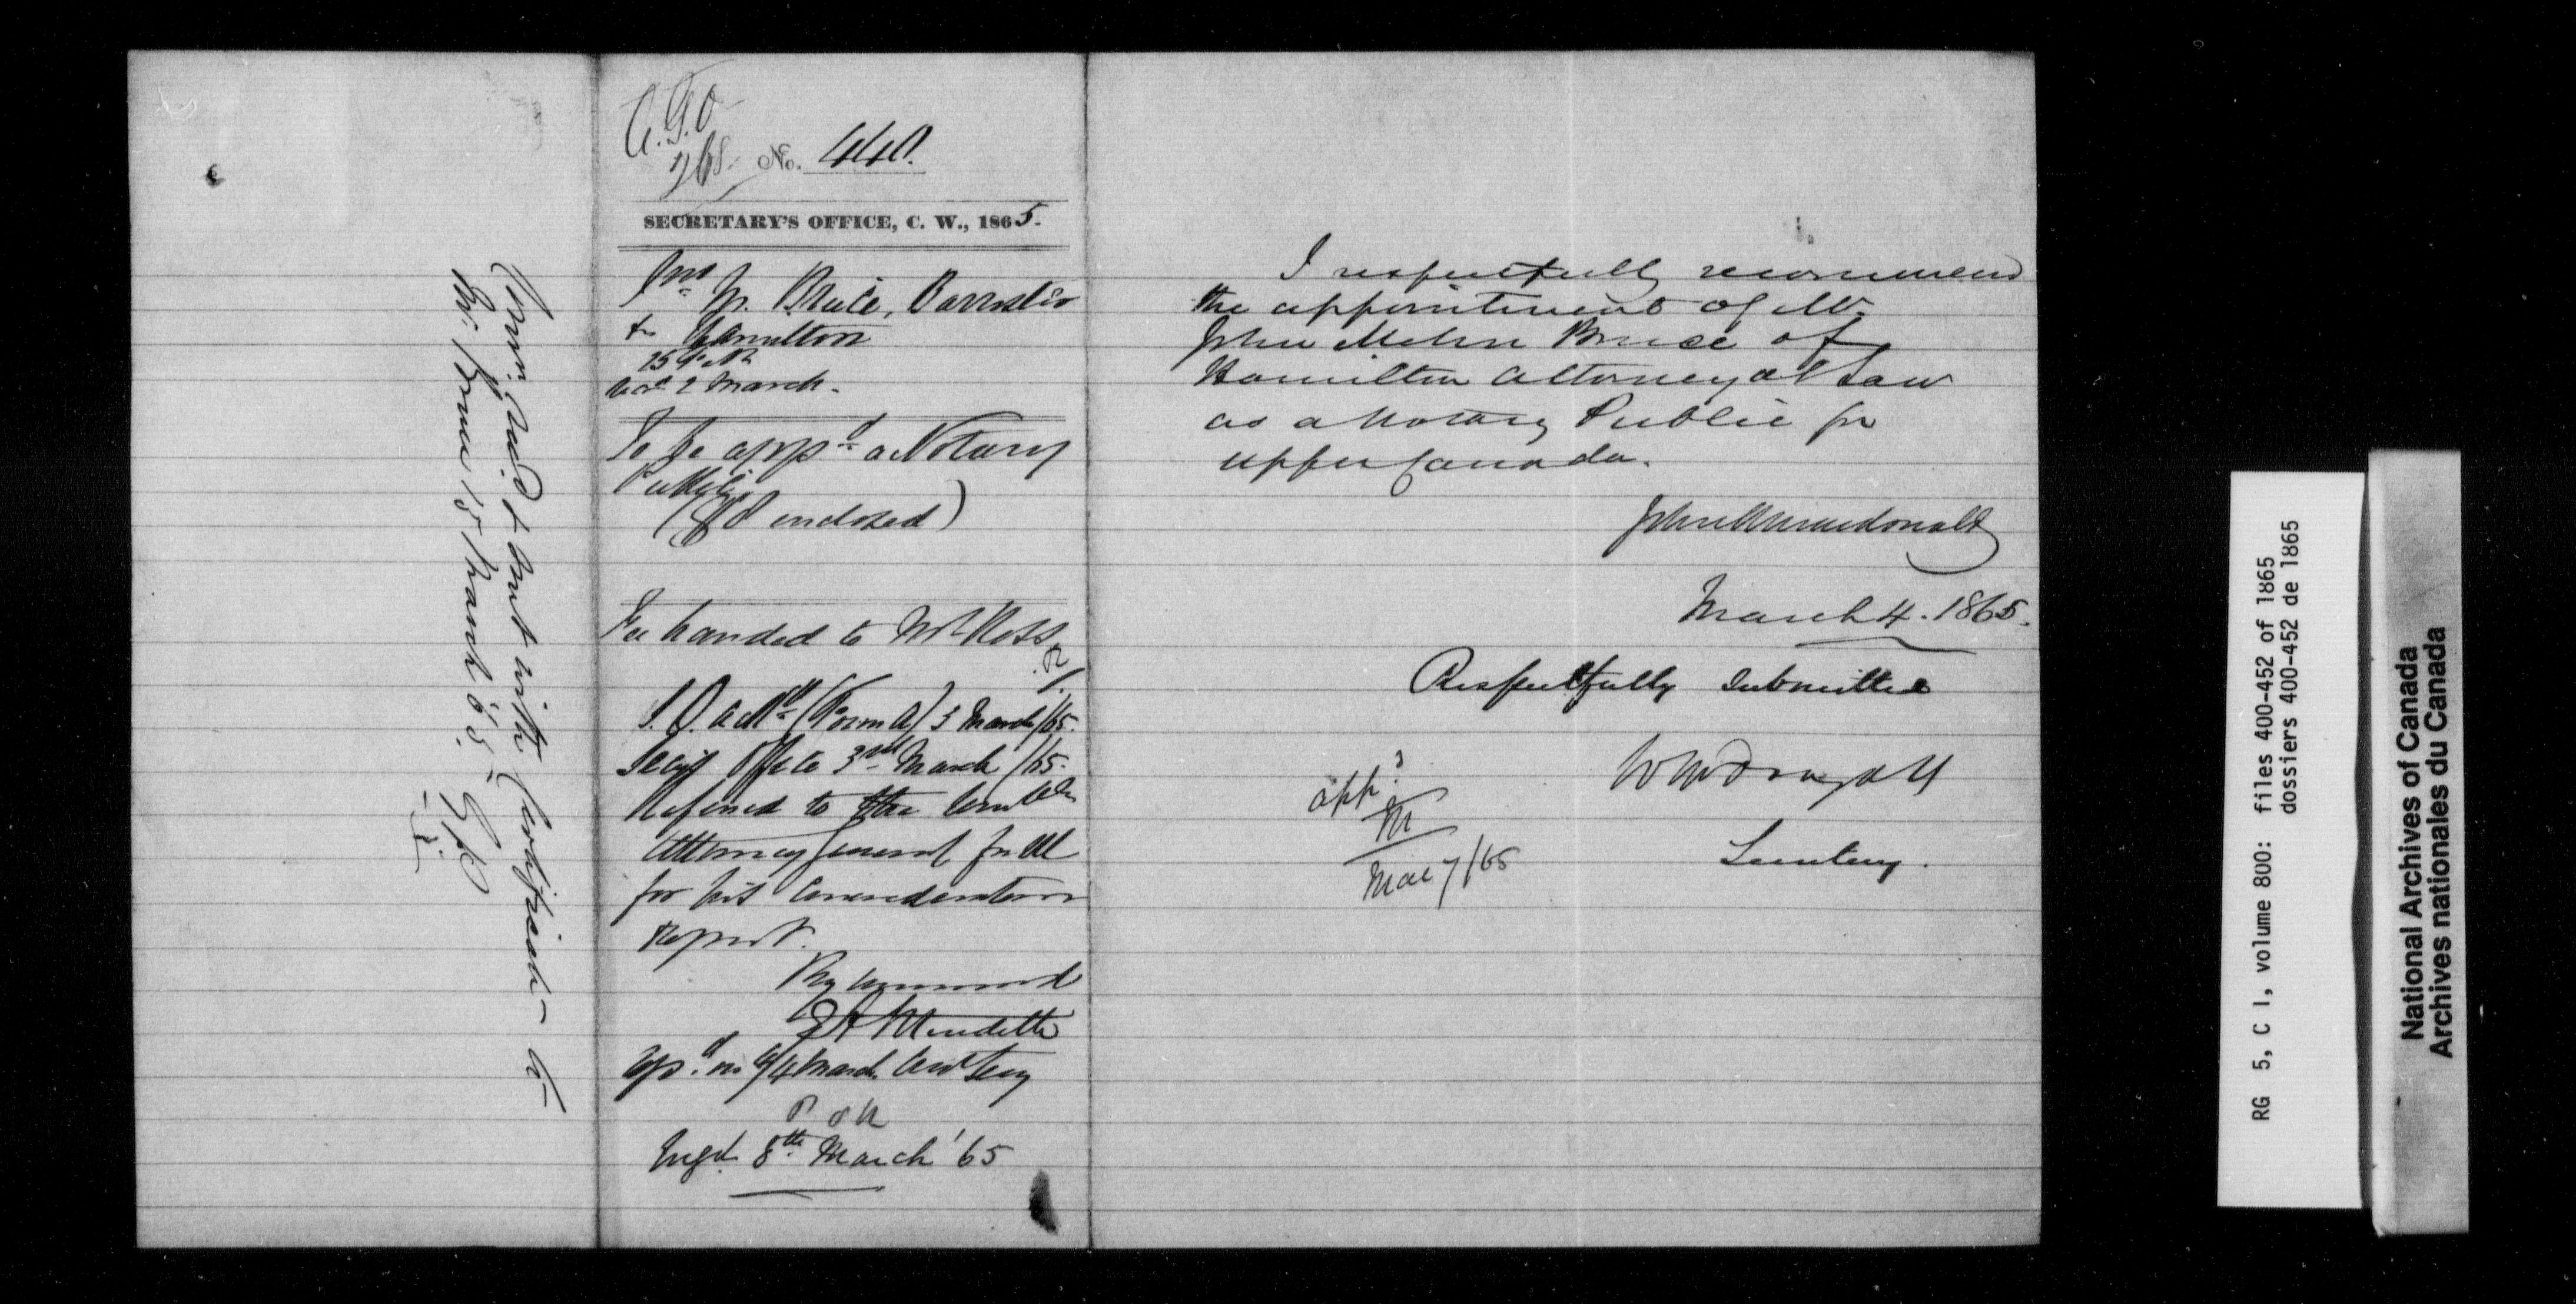 A.G.O
268. No. 440.
SECRETARY'S OFFICE, C. W., 1865.
Jno M. Bruce, Barrister
Hamilton
Recd 2 March.
To be appd a Notary
Public
($8 enclosed)
Fee handed to Mr Ross
P.O. ackd (Form A) 3 March/65.
Secy's Office 3rd March /65.
Referred to the Honble
Attorney General for UC
for his consideration
Report.
By command
E A Meredith
Asst Secy
Engd 8th March '65
Comm. and sent with Certificate to
Mr. Bruce 15 March '65.
I respectfully recommend
the appointment of Mr
John Bruce of
Hamilton Attorney at Law
as a Notary Public for
Upper Canada.
John A Macdonald
March 4. 1865.
Respectfully submitted
Wm McDougall
Secretary.
appd
M
Mar 7/65
RG 5, C 1, volume 800: files 400-452 of 1865
dossiers 400-452 de 1865
National Archives of Canada
Archives nationales du Canada